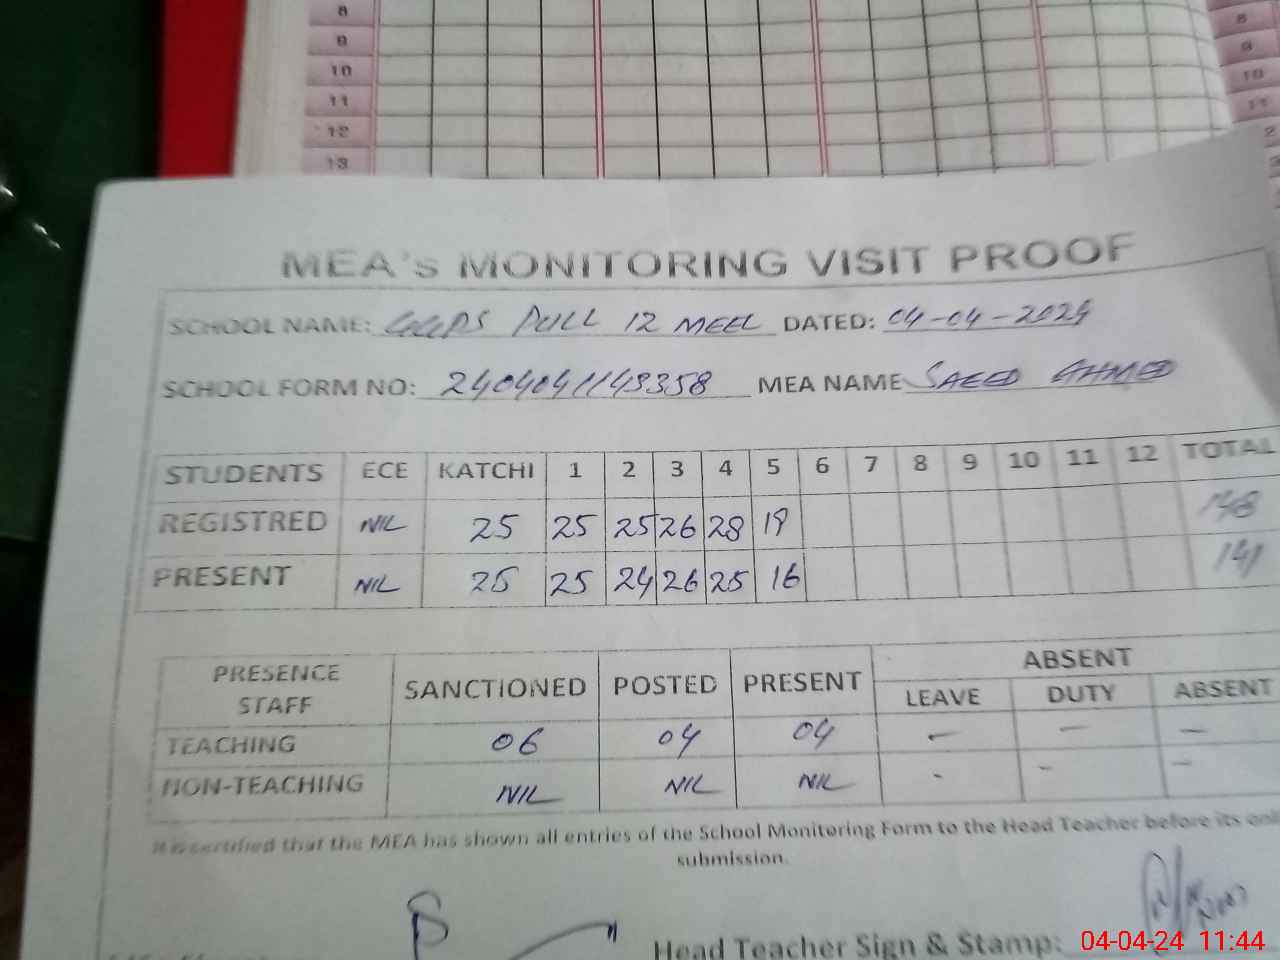 8
9
10
11
12
13
8
9
10
11
MEA's MONITORING VISIT PROOF
SCHOOL NAME: GGPS PULL 12 MEEL DATED: 04-04-2024
SCHOOL FORM NO: 2404041143358 MEA NAME SAEED AHMED
STUDENTS ECE KATCHI 1 2 3 4 5 6 7 8 9 10 11 12 TOTAL
REGISTRED NIL 25 25 25 26 28 19 148
PRESENT NIL 25 25 24 26 25 16 141
PRESENCE STAFF SANCTIONED POSTED PRESENT ABSENT
LEAVE DUTY ABSENT
TEACHING 06 04 04 – – –
NON-TEACHING NIL NIL NIL - – –
It is certified that the MEA has shown all entries of the School Monitoring Form to the Head Teacher before its
submission.
Head Teacher Sign & Stamp:
04-04-24 11:44